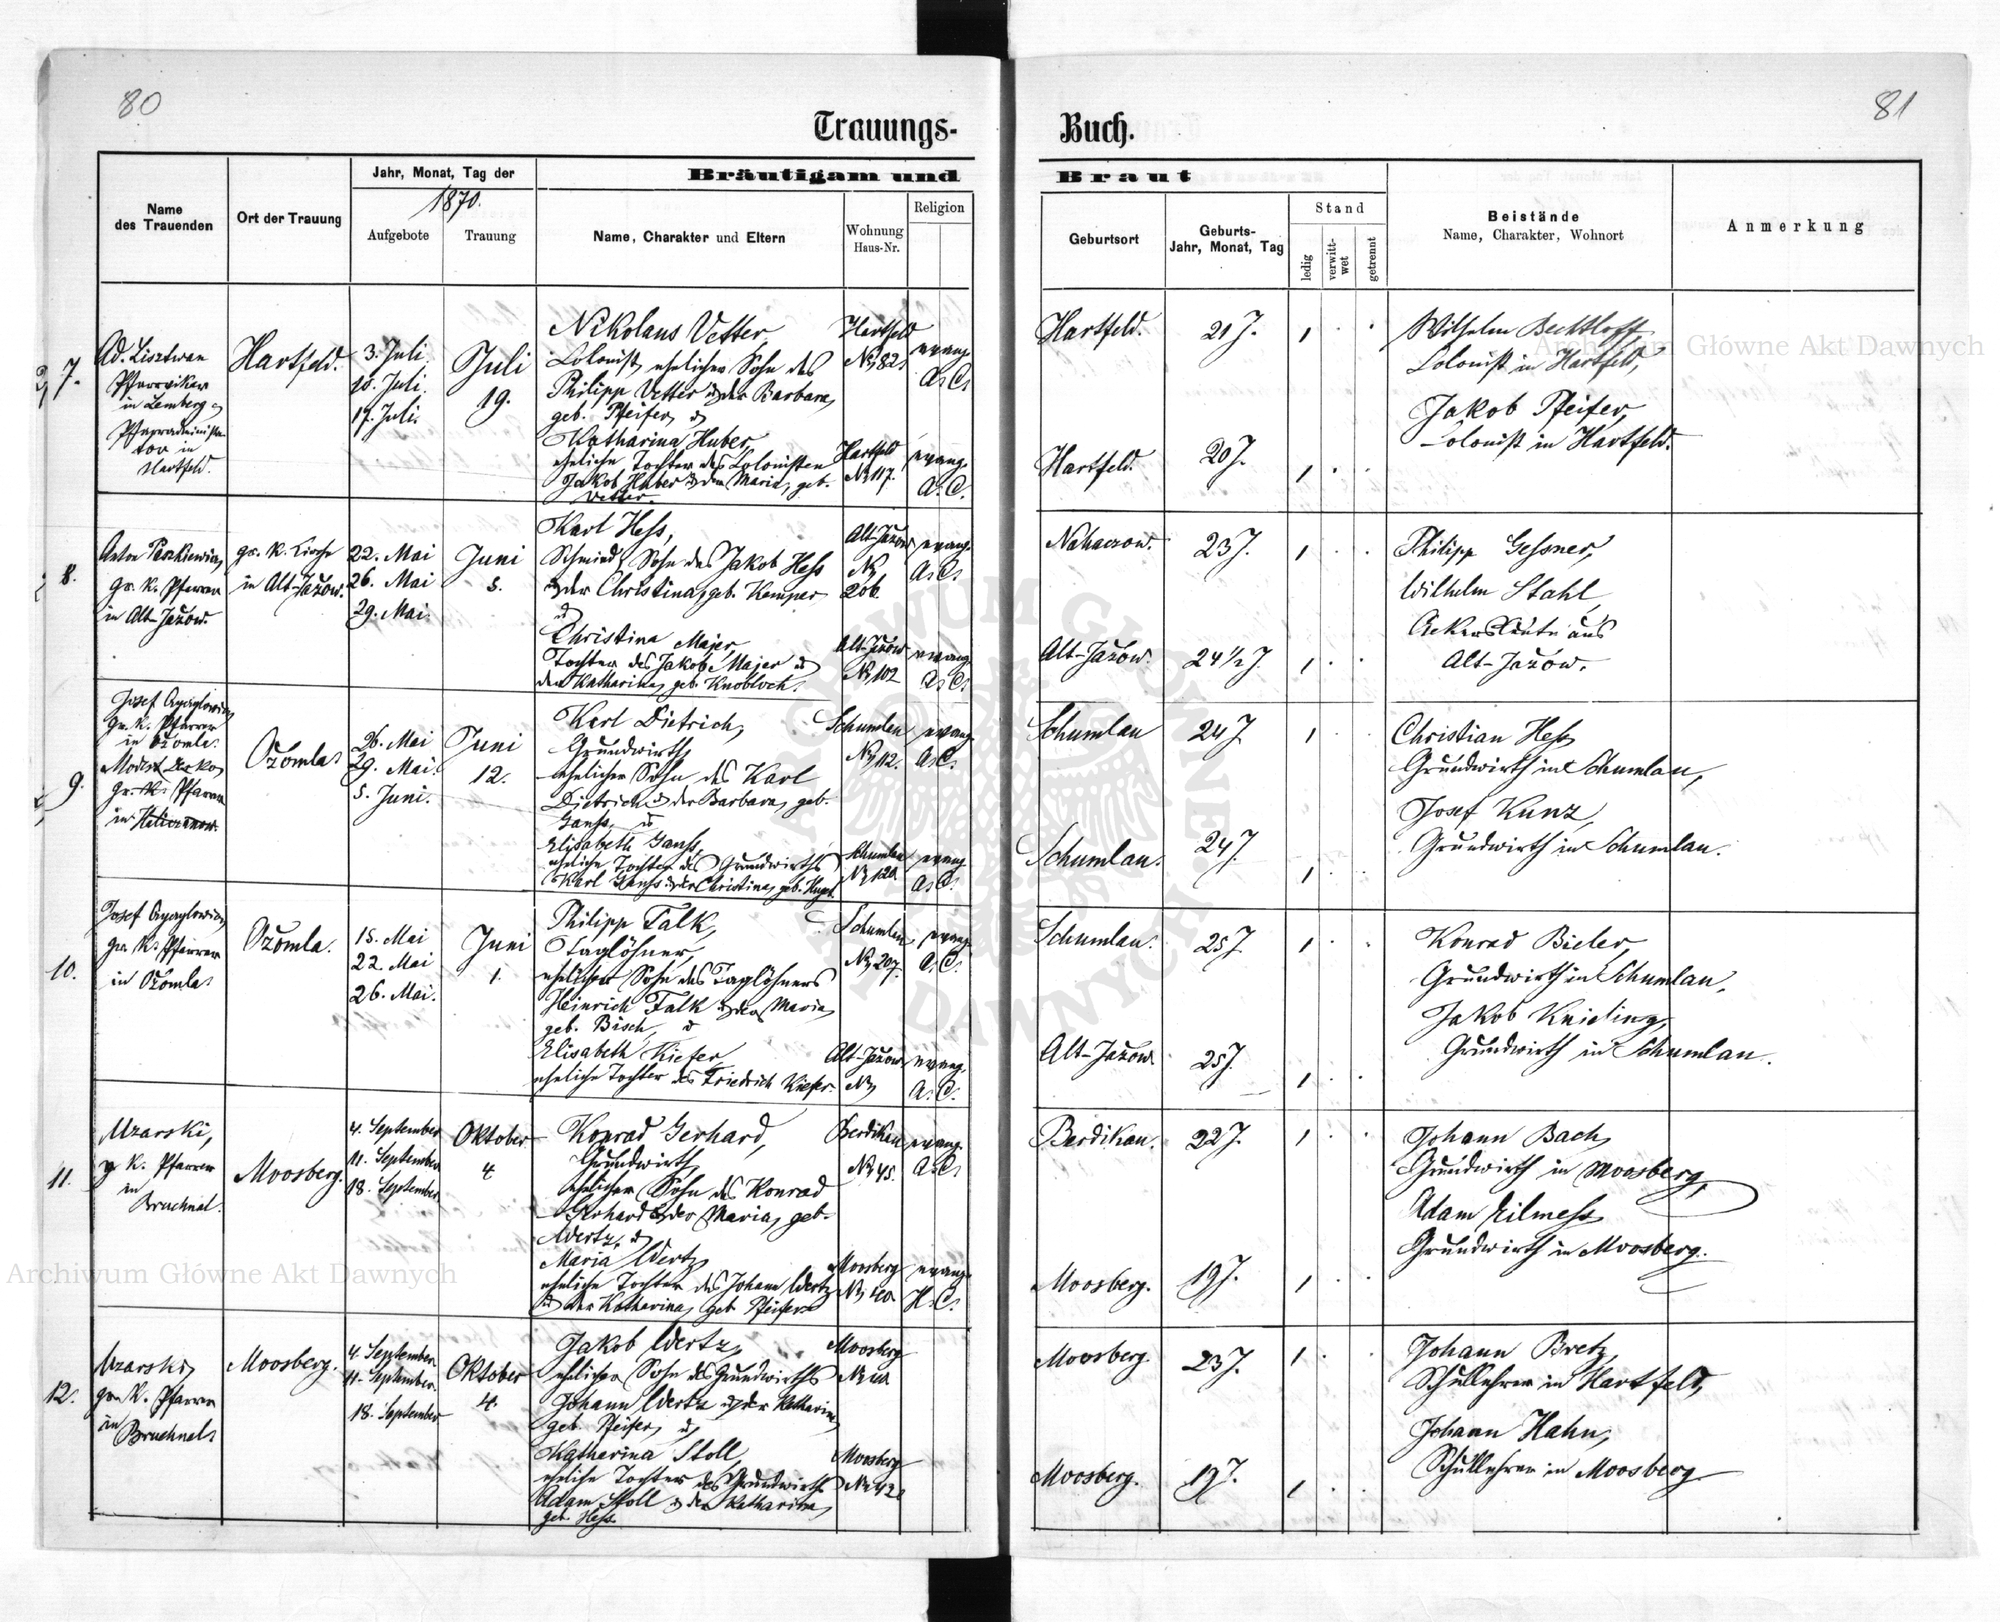 80
81
Trauungs-
Buch.
Name
des Trauenden
Ort der Trauung
Jahr, Monat, Tag der
1870.
Aufgebote
Trauung
Bräutigam und
Braut
Name, Charakter und Eltern
Wohnung
Haus-Nr.
Religion
Geburtsort
Geburts-
Jahr, Monat, Tag
Stand
ledig
verwitt-
wet
getrennt
Beistände
Name, Charakter, Wohnort
Anmerkung
7.
Ad. Lisztwan
Pfarrvikar
in Lemberg
Pfarradministra-
tor in
Hartfeld.
Hartfeld.
3. Juli
10. Juli
17. Juli
Juli
19.
Nikolaus Vetter,
Kolonist, ehelicher Sohn des
Philipp Vetter u der Barbara,
geb. Pfeifer, u
Katharina Huber,
eheliche Tochter des Kolonisten
Jakob Huber u der Maria, geb.
Vetter.
Hartfeld
No 82
evang.
A. C.
Hartfeld
No 117.
evang.
A. C.
Hartfeld.
21 J.
Hartfeld.
20 J.
Wilhelm Bechtloff,
Kolonist in Hartfeld,
Jakob Pfeifer,
Kolonist in Hartfeld.
8.
Anton
gr. k. Pfarrer
in Alt-Jazow.
gr. k. Kirche
in Alt-Jazow.
22. Mai
26. Mai
29. Mai.
Juni
5.
Karl Hess,
Schmied, Sohn des Jakob Hess
u der Christina, geb. Kemper
u
Christina Majer,
Tochter des Jakob Majer u
der Katharina, geb. Knobloch.
Alt-Jazow
No
206
evang.
A. C.
Alt-Jazow
No 102
evang.
A. C.
Nahaczow.
23 J.
Alt-Jazow.
24 1/2 J.
Philipp Gessner,
Wilhelm Stahl,
Ackersleute aus
Alt-Jazow.
9.
Josef
gr. k. Pfarrer
in Ozomla.
Modest
gr. k. Pfarrer
in
Ozomla
26. Mai
29. Mai.
5. Juni.
Juni
12.
Karl Dietrich,
Grundwirth,
ehelicher Sohn des Karl
Dietrich u der Barbara, geb.
Ganss, u
Elisabeth Ganss,
eheliche Tochter des Grundwirths
Karl Ganss u der Christina, geb.
Schumlau
No 12.
evang.
A. C.
Schumlau
No 120
evang.
A. C.
Schumlau
24 J.
Schumlau.
24 J.
Christian Hess,
Grundwirth in Schumlau,
Josef Kunz,
Grundwirth in Schumlau.
10.
Josef
gr. k. Pfarrer
in Ozomla
Ozomla.
15. Mai
22. Mai
26. Mai.
Juni
1.
Philipp Falk,
Taglöhner,
ehelicher Sohn des Taglöhners
Heinrich Falk u der Maria,
geb. Bisch, u
Elisabeth Kiefer,
eheliche Tochter des Friedrich Kiefer.
Schumlau
No 207.
evang.
A. C.
Alt-Jazow
No
evang.
A. C.
Schumlau.
25 J.
Alt-Jazow.
25 J.
Konrad Bieler,
Grundwirth in Schumlau,
Jakob Knieling,
Grundwirth in Schumlau.
11.
Mzarski,
gr. k. Pfarrer
in
Bruchnal.
Moosberg.
4. September
11. September
18. September
Oktober
4
Konrad Gerhard,
Grundwirth,
ehelicher Sohn des Konrad
Gerhard u der Maria, geb.
Wertz, u
Maria Wertz,
eheliche Tochter des Johann Wertz
u der Katharina, geb. Pfeifer.
Berdikau
No 45.
evang.
A. C.
Moosberg
No
evang.
H. C.
Berdikau.
22 J.
Moosberg.
19 J.
Johann Bach,
Grundwirth in Moosberg,
Adam Hilmess
Grundwirth in Moosberg.
12.
Mzarski,
gr. k. Pfarrer
in Bruchnal.
Moosberg.
4. September.
11. September.
18. September
Oktober
4.
Jakob Wertz,
ehelicher Sohn des Grundwirths
Johann Wertz u der Katharina,
geb. Pfeifer, u
Katharina Stoll,
eheliche Tochter des Grundwirths
Adam Stoll u der Katharina,
geb. Hess.
Moosberg
No
Moosberg
No 42
Moosberg.
23 J.
Moosberg.
19 J.
Johann Bretz,
Schullehrer in Hartfeld,
Johann Hahn,
Schullehrer in Moosberg.
Archiwum Główne Akt Dawnych
Archiwum Główne Akt Dawnych
ARCHIWUM GŁÓWNE AKT DAWNYCH